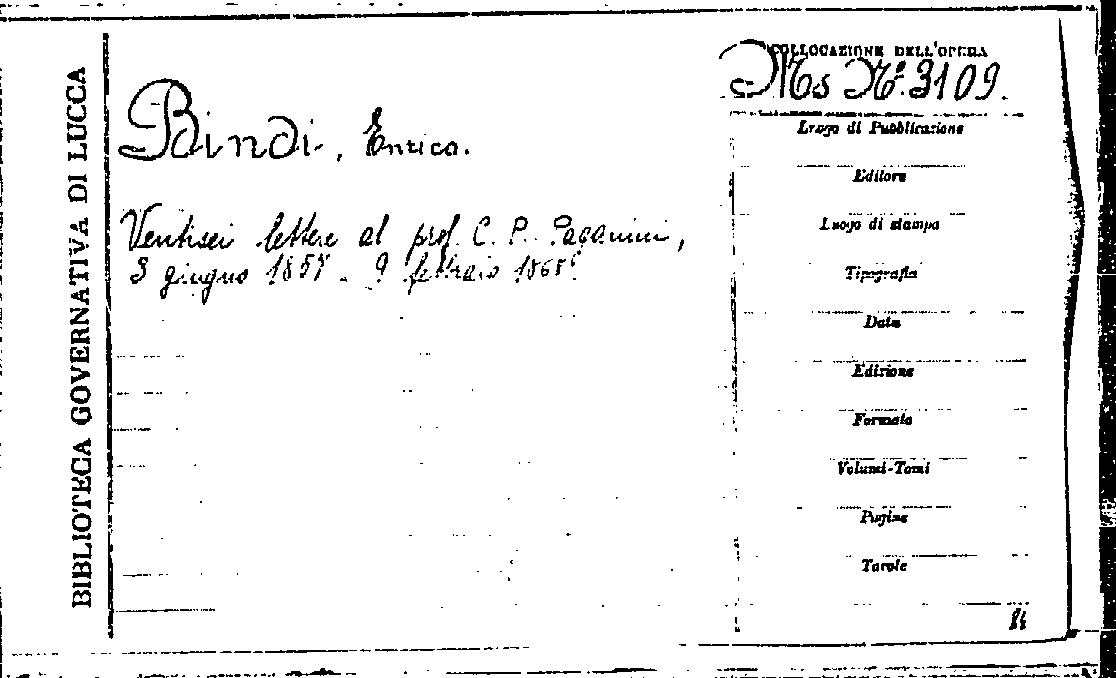 BIBLIOTECA GOVERNATIVA DI LUCCA
COLLOCAZIONE DELL'OPERA
Ms Nº. 3109.
Bindi, Enrico.
Ventisei lettere al prof. C. P. Paganini,
3 giugno 1857 - 9 febbraio
Luogo di Pubblicazione
Editore
Luogo di stampa
Tipografia
Data
Edizione
Formato
Volumi-Tomi
Pagine
Tavole